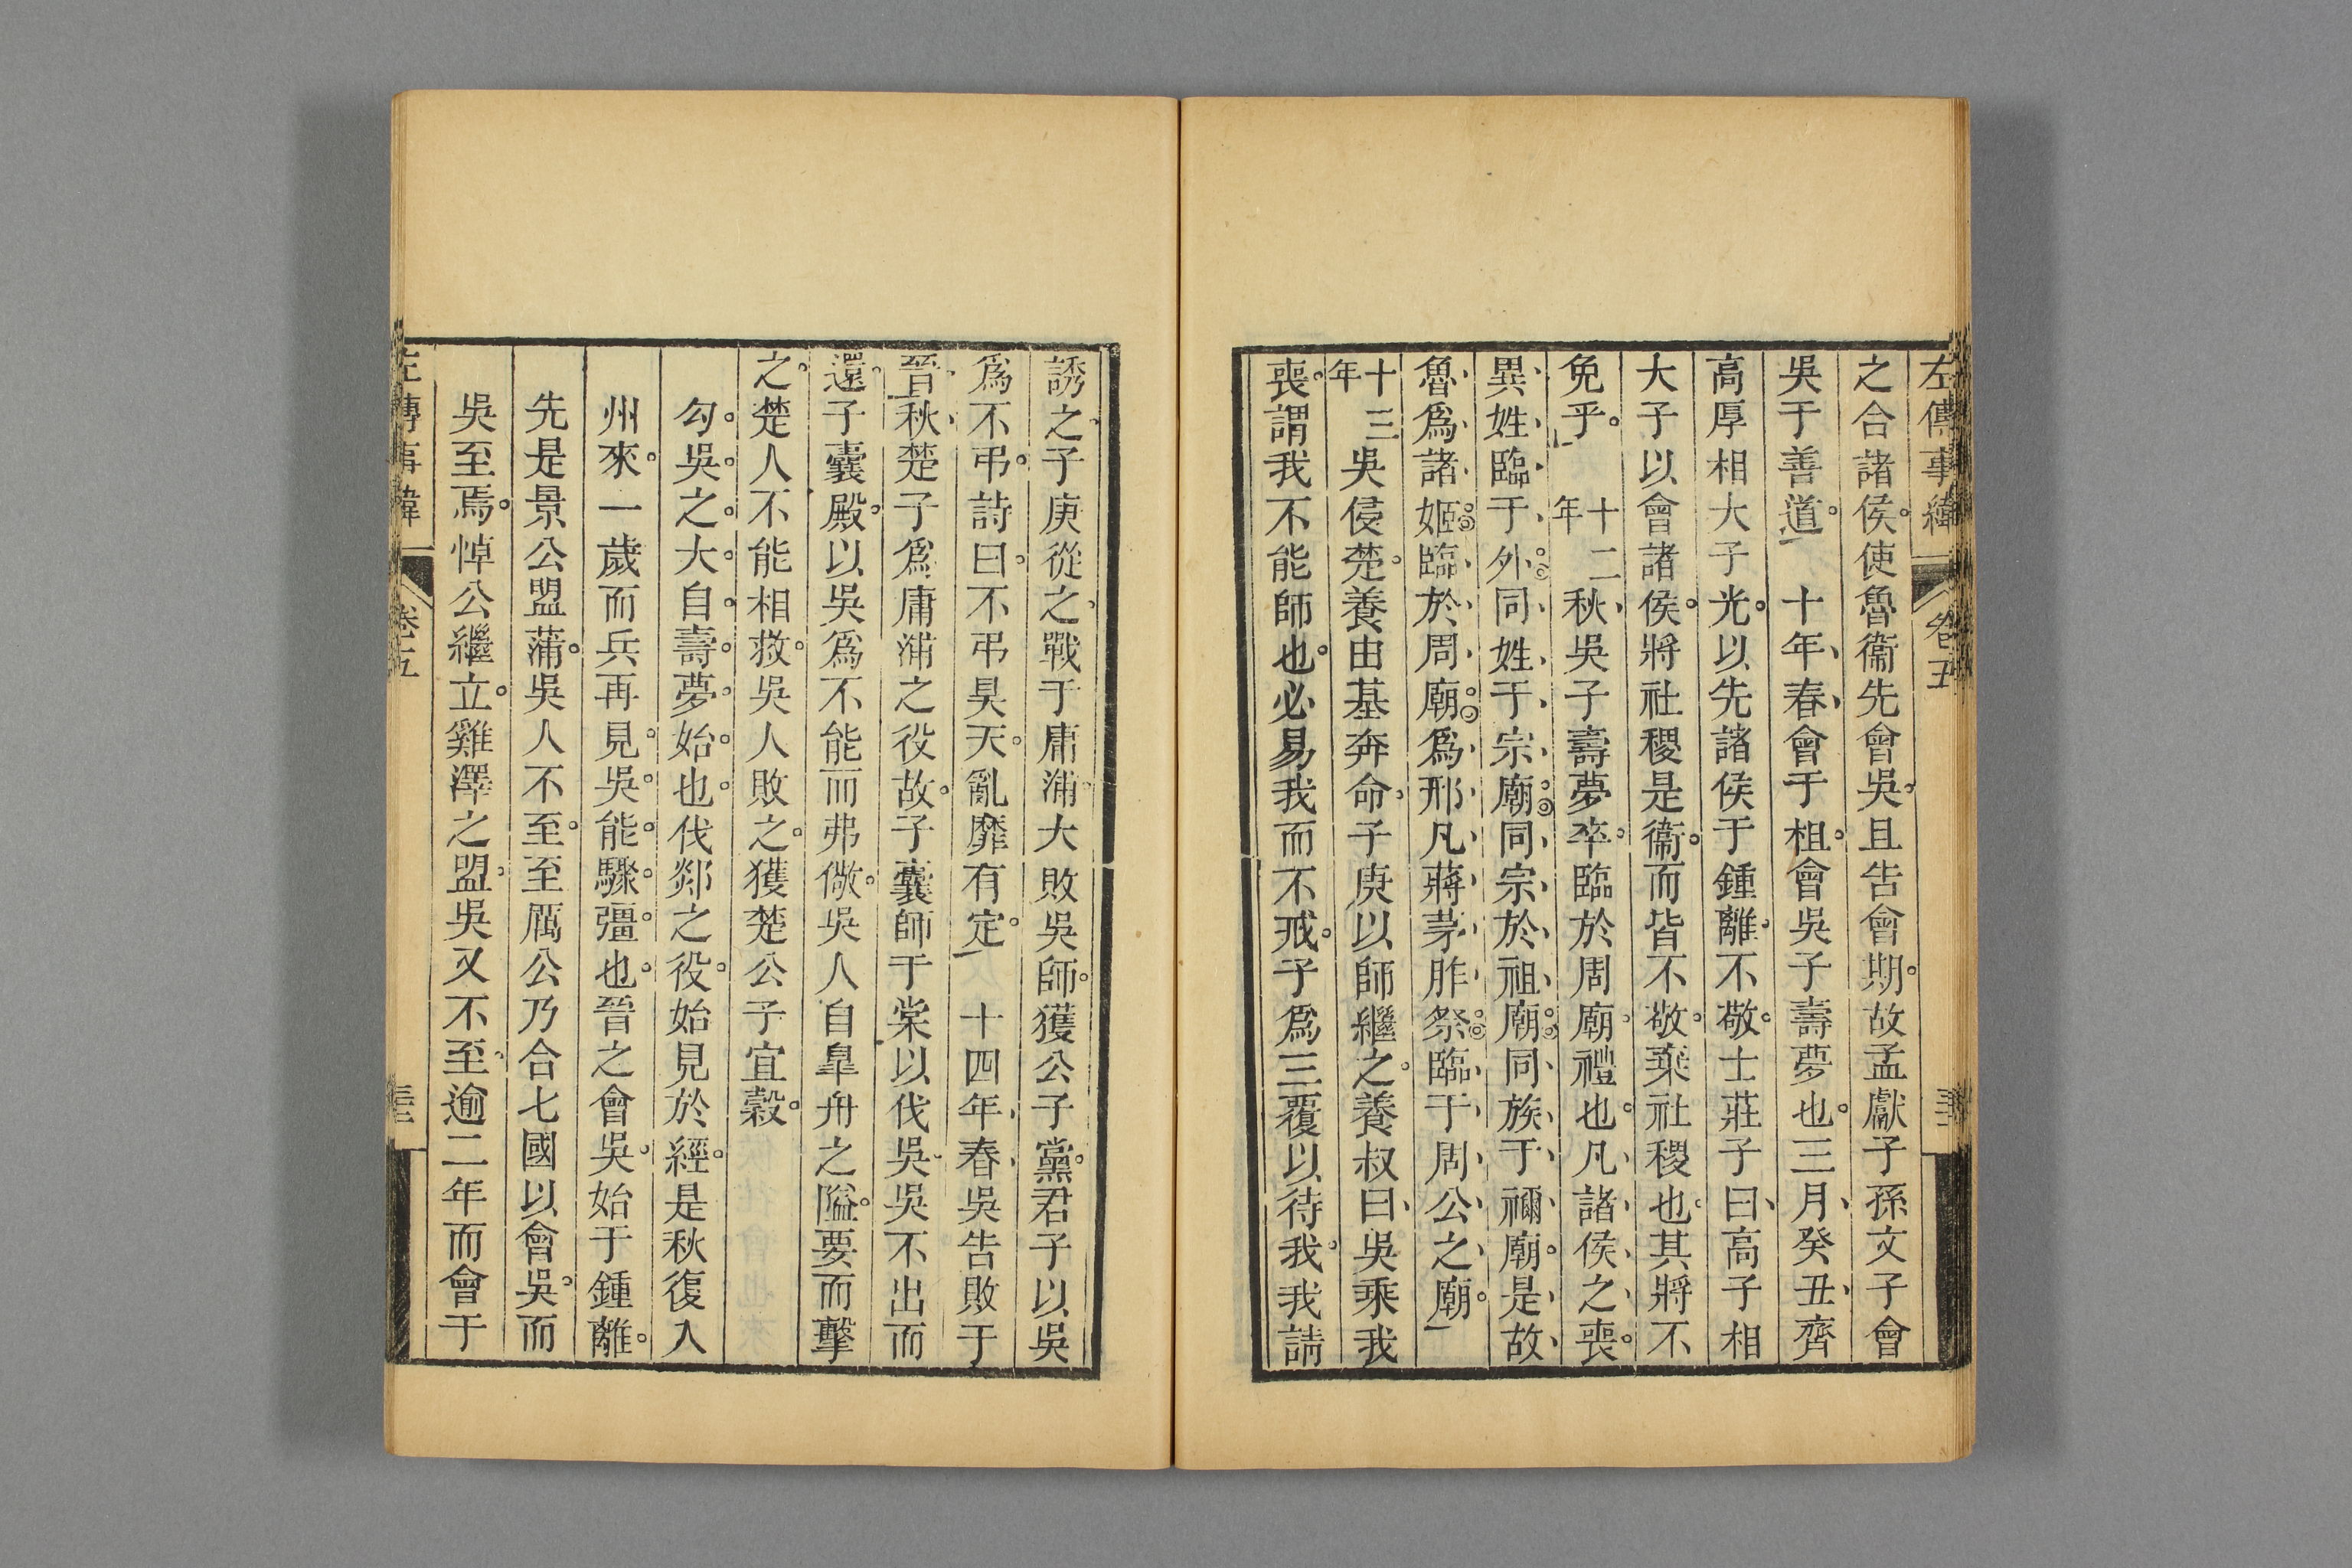 左傳事緯 卷五
之合諸侯使魯衞先會吳且告會期故孟獻子孫文子會
吳于善道 十年春會于柤會吳子壽夢也三月癸丑齊
高厚相大子光以先諸侯于鍾離不敬士莊子曰高子相
大子以會諸侯將社稷是衞而皆不敬棄社稷也其將不
免乎 十二年秋吳子壽夢卒臨於周廟禮也凡諸侯之喪
異姓臨于外同姓于宗廟同宗於祖廟同族于禰廟是故
魯爲諸姬臨於周廟爲邢凡蔣茅胙祭臨于周公之廟
十三年吳侵楚養由基奔命子庚以師繼之養叔曰吳乘我
喪謂我不能師也必易我而不戒子爲三覆以待我我請
誘之子庚從之戰于庸浦大敗吳師獲公子黨君子以吳
爲不弔詩曰不弔昊天亂靡有定 十四年春吳告敗于
晉秋楚子爲庸浦之役故子囊師于棠以伐吳吳不出而
還子囊殿以吳爲不能而弗儆吳人自皐舟之隘要而擊
之楚人不能相救吳人敗之獲楚公子宜穀
勾吳之大自壽夢始也伐郯之役始見於經是秋復入
州來一歲而兵再見吳能驟彊也晉之會吳始于鍾離
先是景公盟蒲吳人不至至厲公乃合七國以會吳而
吳至焉悼公繼立雞澤之盟吳又不至逾二年而會于
左傳事緯 卷五